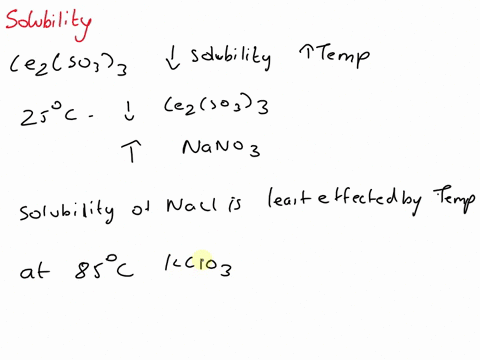 Solubility
Ce2(SO3)3 ↓ solubility ↑ Temp
25°C - ↓ Ce2(SO3)3
↑ NaNO3
Solubility of NaCl is least effected by Temp
at 85°C KClO3